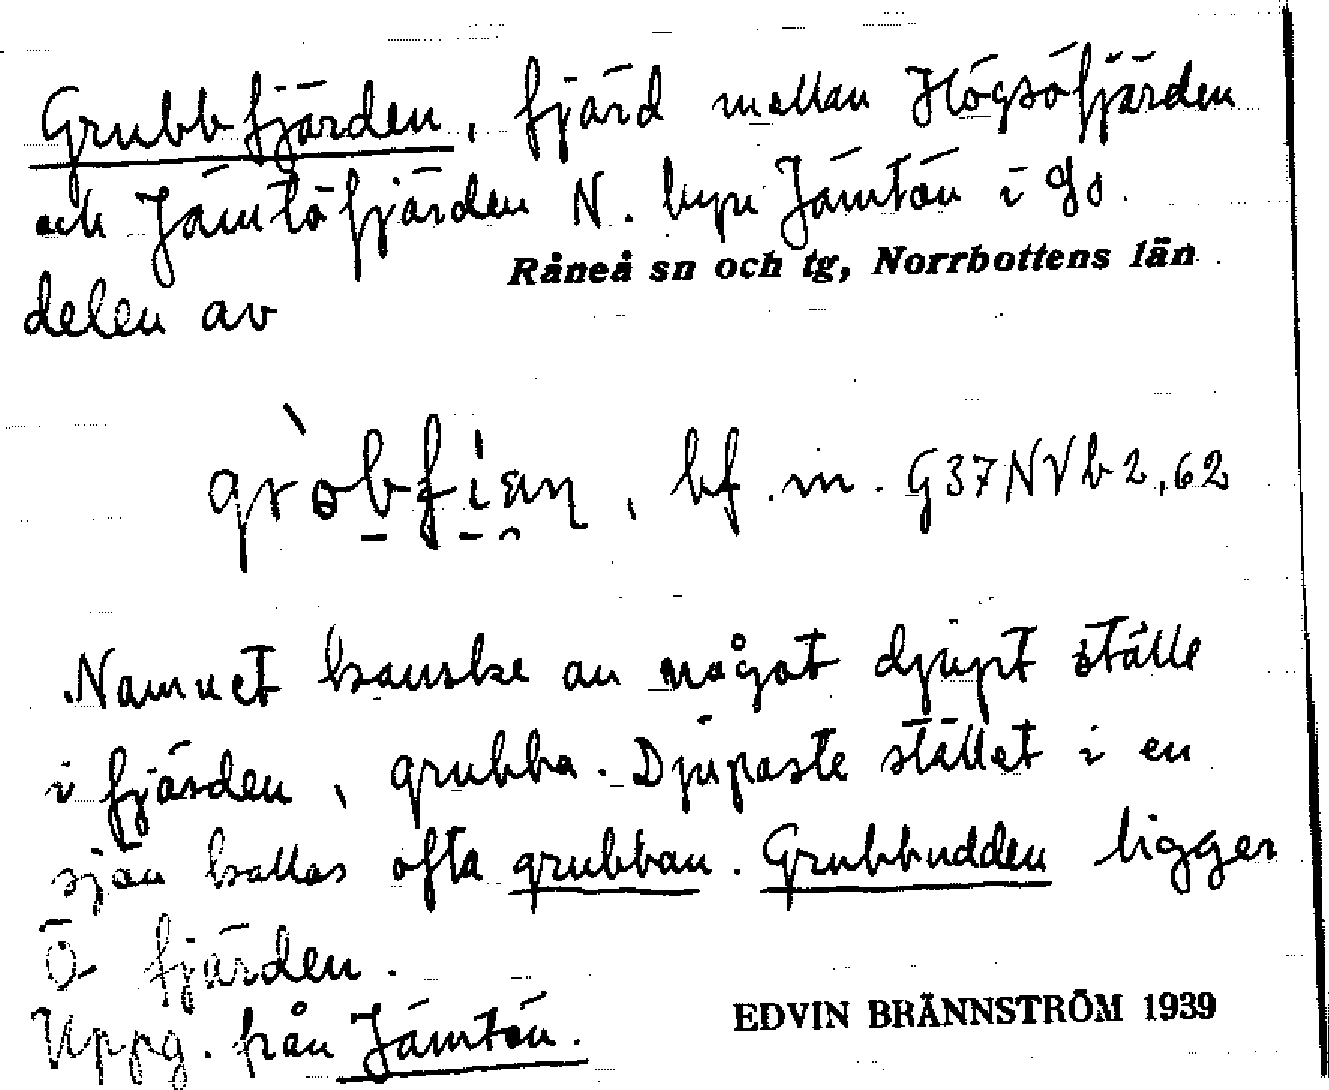 Grubbfjärden, fjärd mellan Högsöfjärden
och Jämtöfjärden N. byn Jämtön i SO.
Råneå sn och tg, Norrbottens län
delen av
bf. m. G37NVb2,62
Namnet kanske av något djupt ställe
i fjärden, grubba. Djupaste stället i en
sjön kallas ofta grubban. Grubbudden ligger
Ö fjärden.
Uppg. från Jämtön.
EDVIN BRÄNNSTRÖM 1939